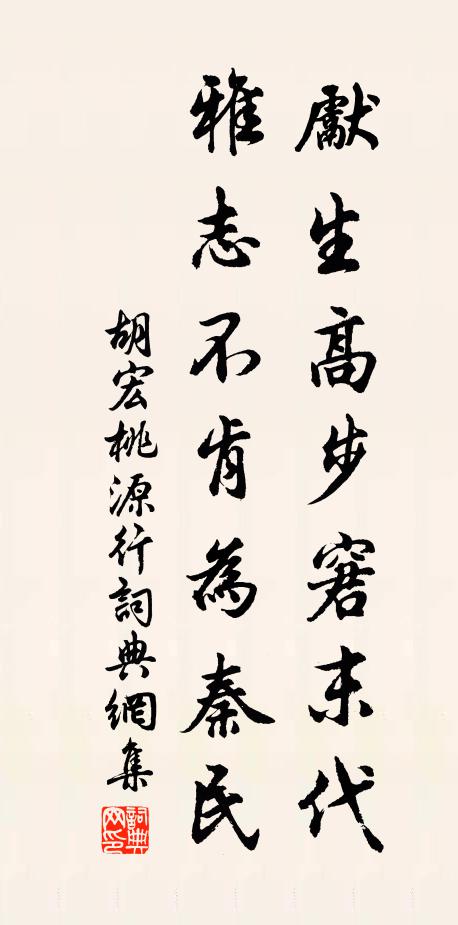 獻生高步窘末代
雅志不肯為秦民
胡宏桃源行詞典網集
詞典
网印